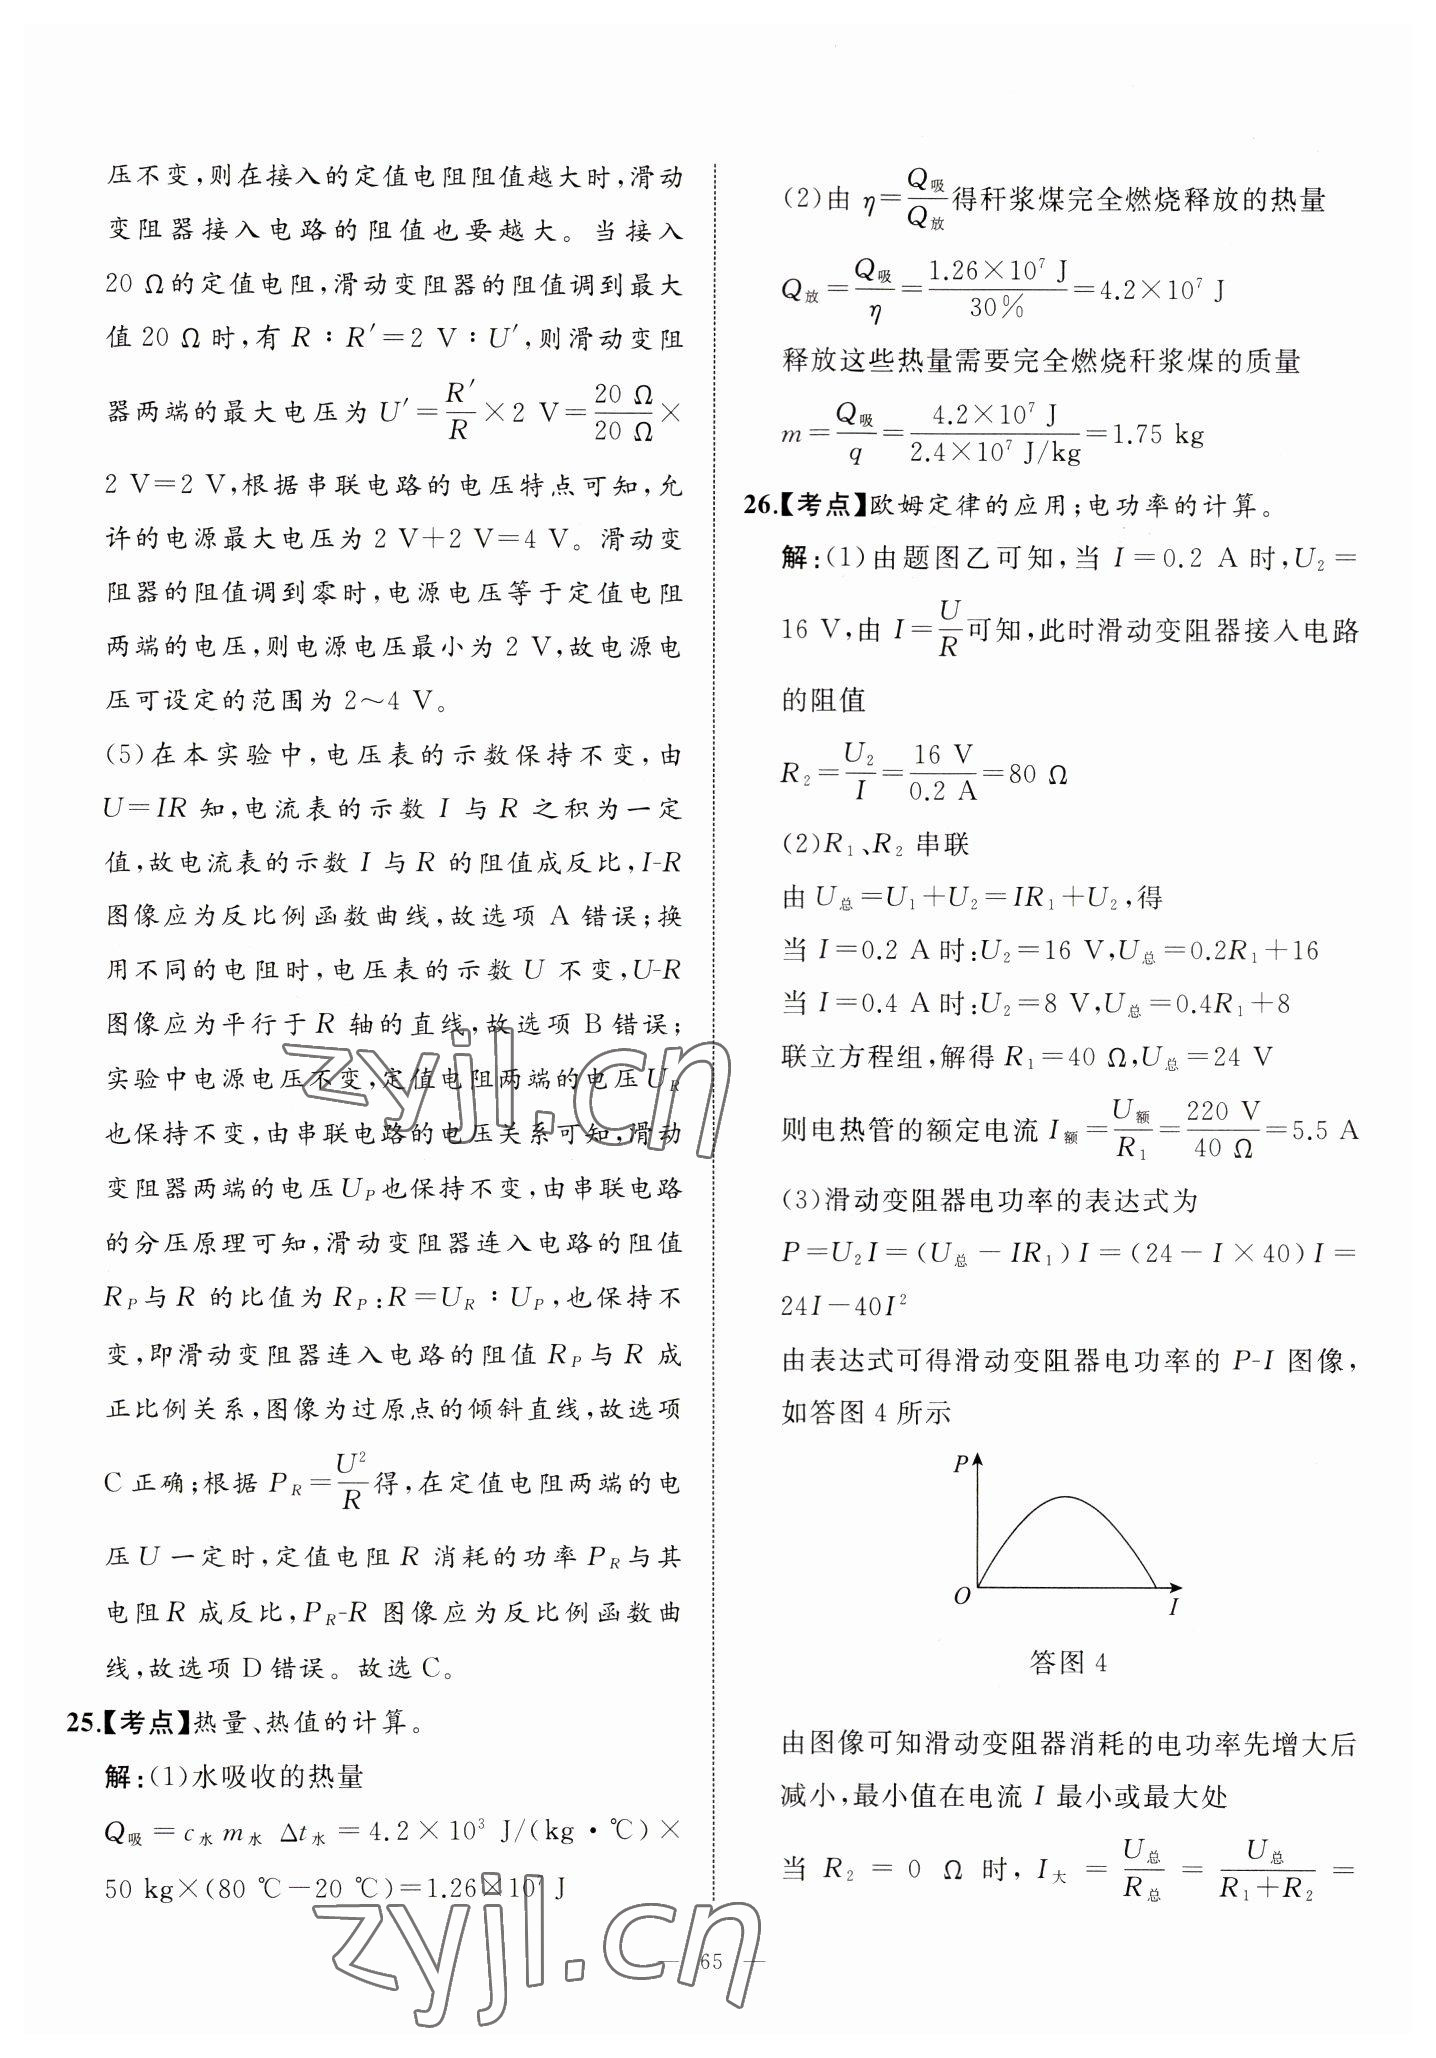 压不变，则在接入的定值电阻阻值越大时，滑动
变阻器接入电路的阻值也要越大。当接入
20 Ω的定值电阻，滑动变阻器的阻值调到最大
值 20 Ω 时，有 R∶R′=2 V∶U′，则滑动变阻
器两端的最大电压为 U′=R′/R×2 V=20 Ω/20 Ω×
2 V=2 V，根据串联电路的电压特点可知，允
许的电源最大电压为 2 V+2 V=4 V。滑动变
阻器的阻值调到零时，电源电压等于定值电阻
两端的电压，则电源电压最小为 2 V，故电源电
压可设定的范围为 2～4 V。
(5)在本实验中，电压表的示数保持不变，由
U=IR 知，电流表的示数 I 与 R 之积为一定
值，故电流表的示数 I 与 R 的阻值成反比，I-R
图像应为反比例函数曲线，故选项 A 错误；换
用不同的电阻时，电压表的示数 U 不变，U-R
图像应为平行于 R 轴的直线，故选项 B 错误；
实验中电源电压不变，定值电阻两端的电压 U_R
也保持不变，由串联电路的电压关系可知，滑动
变阻器两端的电压 U_P 也保持不变，由串联电路
的分压原理可知，滑动变阻器连入电路的阻值
R_P 与 R 的比值为 R_P:R=U_R∶U_P，也保持不
变，即滑动变阻器连入电路的阻值 R_P 与 R 成
正比例关系，图像为过原点的倾斜直线，故选项
C 正确；根据 P_R=U²/R 得，在定值电阻两端的电
压 U 一定时，定值电阻 R 消耗的功率 P_R 与其
电阻 R 成反比，P_R-R 图像应为反比例函数曲
线，故选项 D 错误。故选 C。
25.【考点】热量、热值的计算。
解：(1)水吸收的热量
Q吸=c水 m水 Δt水=4.2×10³ J/(kg·℃)×
50 kg×(80 ℃-20 ℃)=1.26×10⁷ J
(2)由 η=Q吸/Q放 得秆浆煤完全燃烧释放的热量
Q放=Q吸/η=1.26×10⁷ J/30%=4.2×10⁷ J
释放这些热量需要完全燃烧秆浆煤的质量
m=Q吸/q=4.2×10⁷ J/2.4×10⁷ J/kg=1.75 kg
26.【考点】欧姆定律的应用；电功率的计算。
解：(1)由题图乙可知，当 I=0.2 A 时，U₂=
16 V，由 I=U/R 可知，此时滑动变阻器接入电路
的阻值
R₂=U₂/I=16 V/0.2 A=80 Ω
(2)R₁、R₂ 串联
由 U总=U₁+U₂=IR₁+U₂，得
当 I=0.2 A 时：U₂=16 V，U总=0.2R₁+16
当 I=0.4 A 时：U₂=8 V，U总=0.4R₁+8
联立方程组，解得 R₁=40 Ω，U总=24 V
则电热管的额定电流 I额=U额/R₁=220 V/40 Ω=5.5 A
(3)滑动变阻器电功率的表达式为
P=U₂I=(U总-IR₁)I=(24-I×40)I=
24I-40I²
由表达式可得滑动变阻器电功率的 P-I 图像，
如答图 4 所示
P
O
I
答图 4
由图像可知滑动变阻器消耗的电功率先增大后
减小，最小值在电流 I 最小或最大处
当 R₂=0 Ω 时，I大=U总/R总=U总/R₁+R₂=
— 65 —
zyjl.cn
zyjl.cn